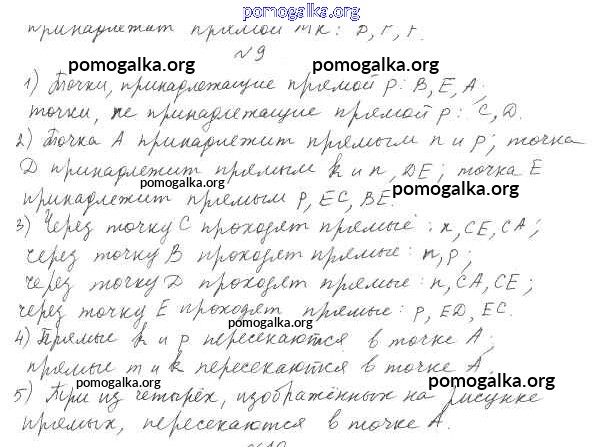 pomogalka.org
принадлежат прямой MK: P, F, F.
№9
pomogalka.org pomogalka.org
1) Точки, принадлежащие прямой p: B, E, A;
точки, не принадлежащие прямой p: C, D.
pomogalka.org
2) Точка A принадлежит прямым n и p; точка
D принадлежит прямым k и n, DE; точка E
pomogalka.org pomogalka.org
принадлежит прямым p, EC, BE.
3) Через точку C проходят прямые: n, CE, CA;
через точку B проходят прямые: n, p;
через точку D проходят прямые: n, CA, CE;
через точку E проходят прямые: p, ED, EC.
pomogalka.org
4) Прямые k и p пересекаются в точке A;
прямые m и k пересекаются в точке A.
pomogalka.org pomogalka.org
5) Три из четырёх, изображённых на рисунке
прямых, пересекаются в точке A.